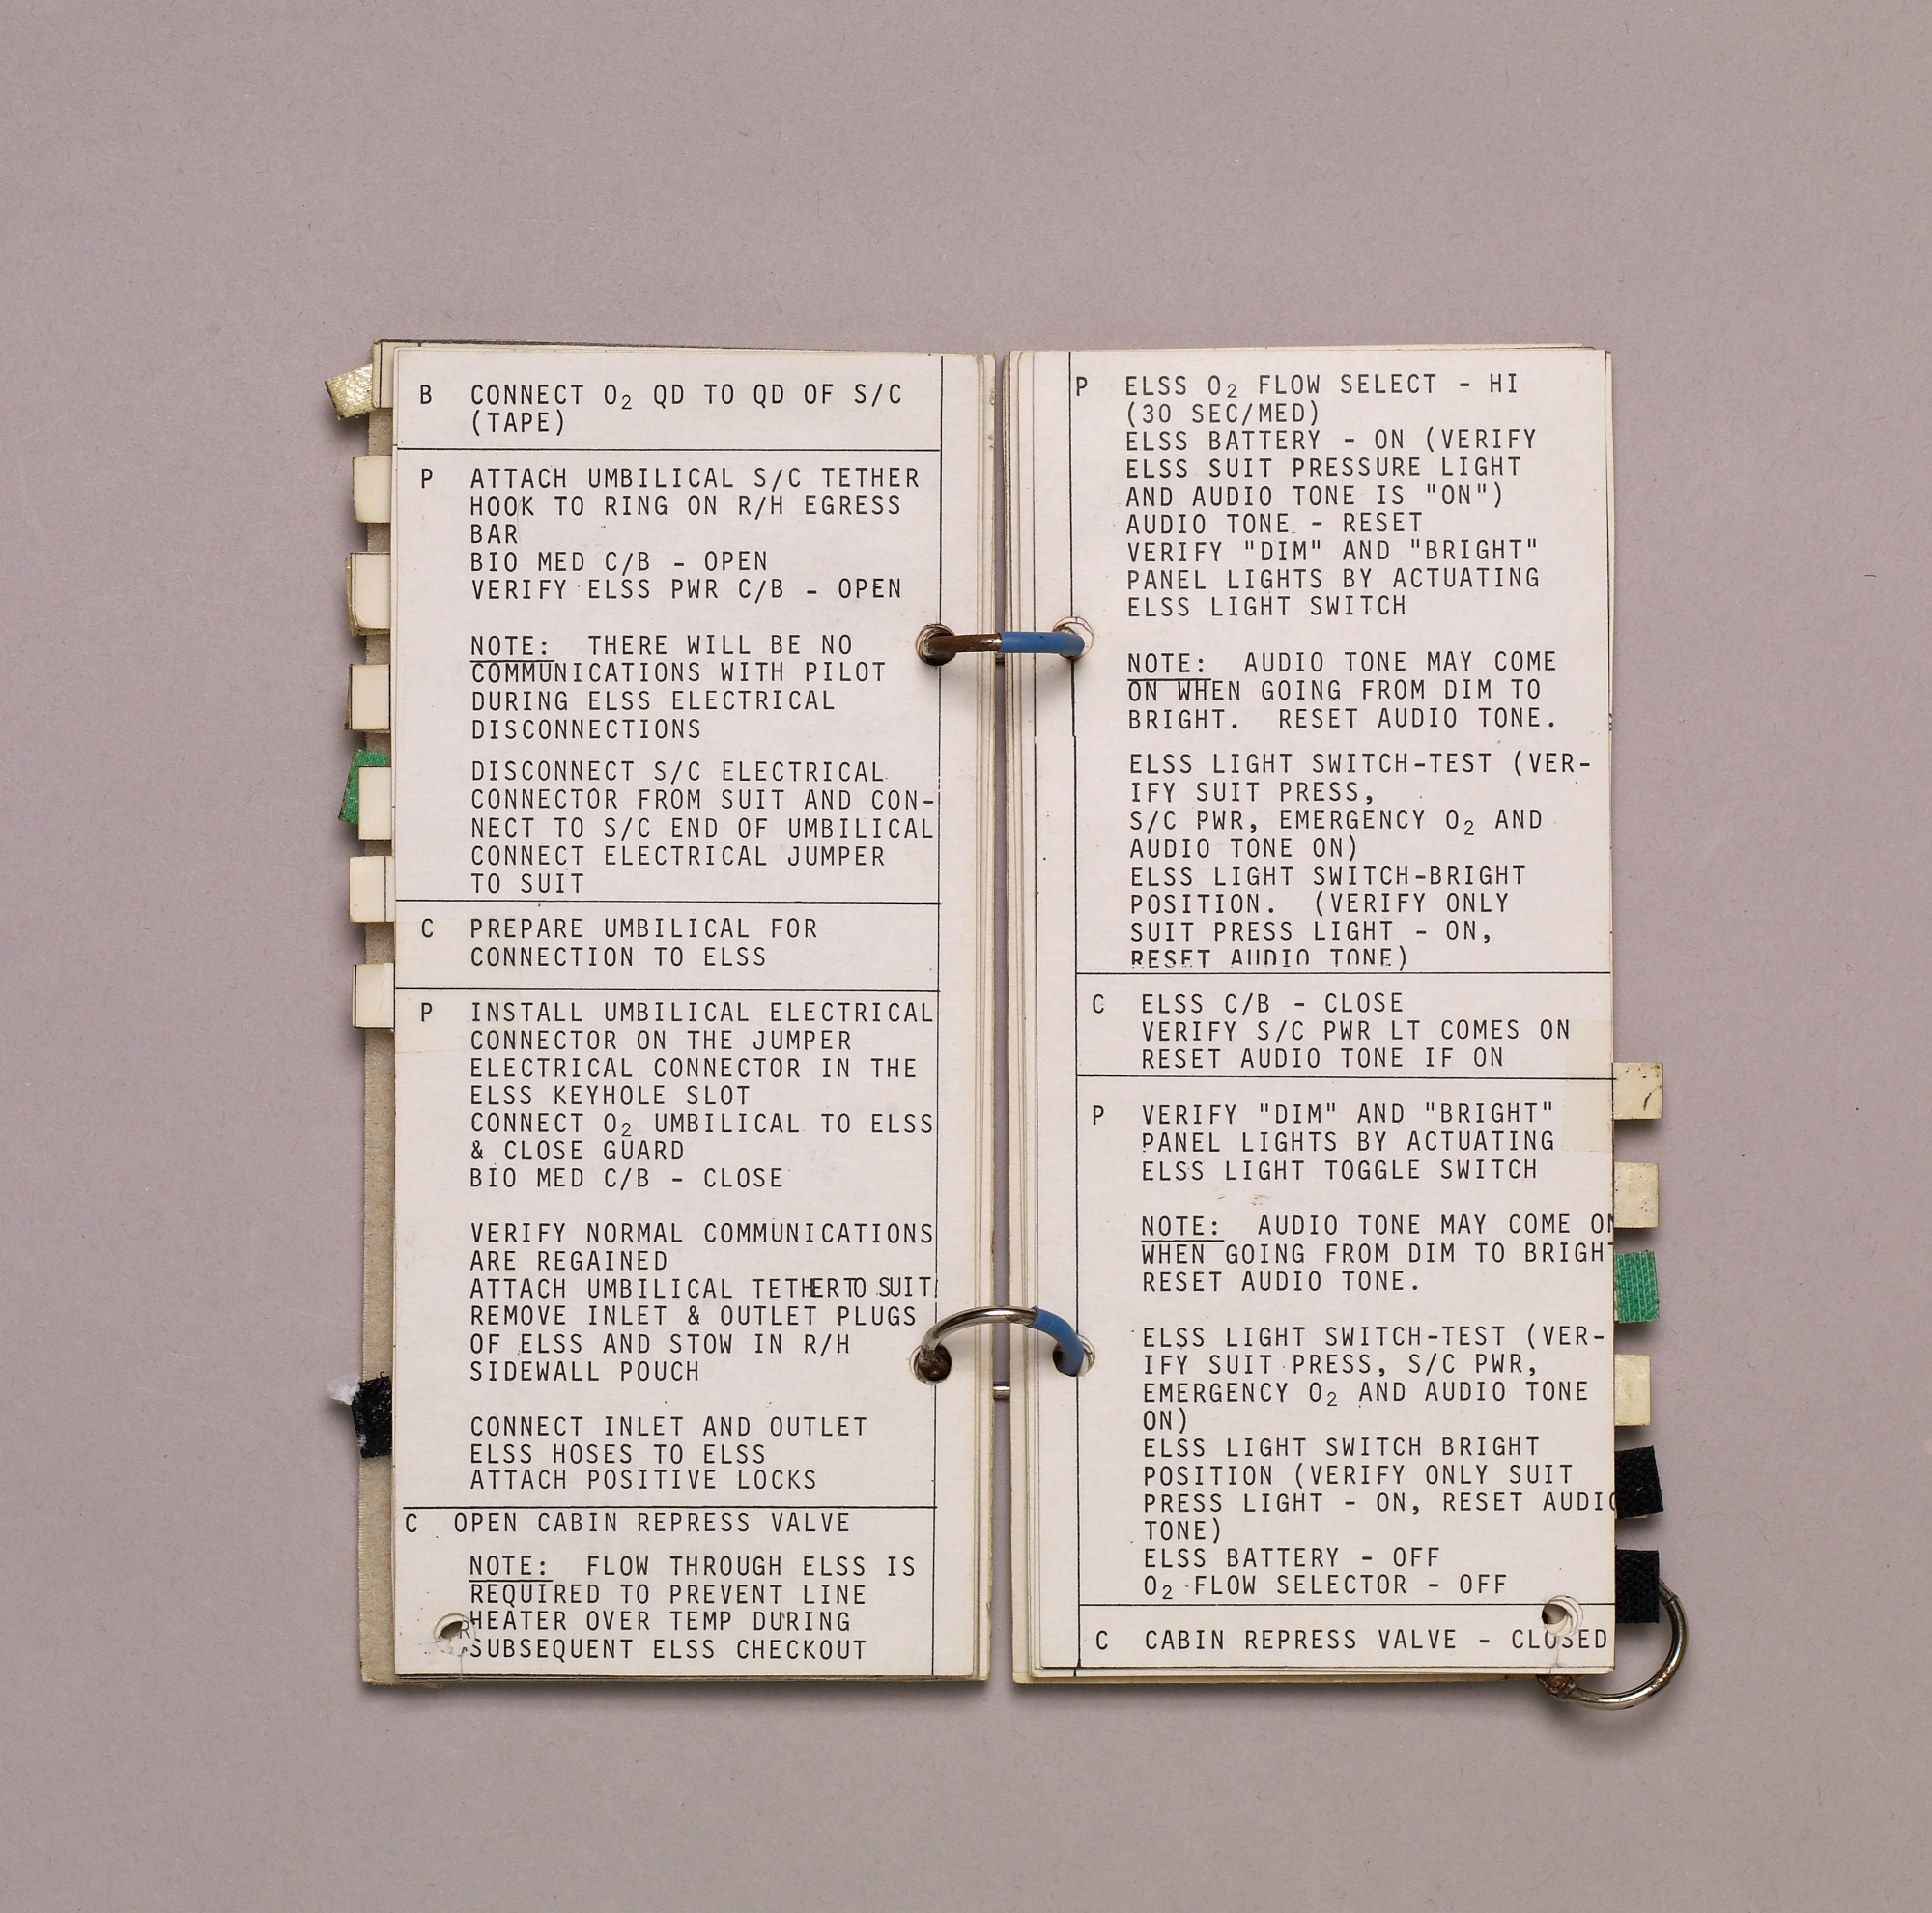 B CONNECT O₂ QD TO QD OF S/C
(TAPE)
P ATTACH UMBILICAL S/C TETHER
HOOK TO RING ON R/H EGRESS
BAR
BIO MED C/B - OPEN
VERIFY ELSS PWR C/B - OPEN
NOTE: THERE WILL BE NO
COMMUNICATIONS WITH PILOT
DURING ELSS ELECTRICAL
DISCONNECTIONS
DISCONNECT S/C ELECTRICAL
CONNECTOR FROM SUIT AND CON-
NECT TO S/C END OF UMBILICAL
CONNECT ELECTRICAL JUMPER
TO SUIT
C PREPARE UMBILICAL FOR
CONNECTION TO ELSS
P INSTALL UMBILICAL ELECTRICAL
CONNECTOR ON THE JUMPER
ELECTRICAL CONNECTOR IN THE
ELSS KEYHOLE SLOT
CONNECT O₂ UMBILICAL TO ELSS
& CLOSE GUARD
BIO MED C/B - CLOSE
VERIFY NORMAL COMMUNICATIONS
ARE REGAINED
ATTACH UMBILICAL TETHER TO SUIT
REMOVE INLET & OUTLET PLUGS
OF ELSS AND STOW IN R/H
SIDEWALL POUCH
CONNECT INLET AND OUTLET
ELSS HOSES TO ELSS
ATTACH POSITIVE LOCKS
C OPEN CABIN REPRESS VALVE
NOTE: FLOW THROUGH ELSS IS
REQUIRED TO PREVENT LINE
HEATER OVER TEMP DURING
SUBSEQUENT ELSS CHECKOUT
P ELSS O₂ FLOW SELECT - HI
(30 SEC/MED)
ELSS BATTERY - ON (VERIFY
ELSS SUIT PRESSURE LIGHT
AND AUDIO TONE IS "ON")
AUDIO TONE - RESET
VERIFY "DIM" AND "BRIGHT"
PANEL LIGHTS BY ACTUATING
ELSS LIGHT SWITCH
NOTE: AUDIO TONE MAY COME
ON WHEN GOING FROM DIM TO
BRIGHT. RESET AUDIO TONE.
ELSS LIGHT SWITCH-TEST (VER-
IFY SUIT PRESS,
S/C PWR, EMERGENCY O₂ AND
AUDIO TONE ON)
ELSS LIGHT SWITCH-BRIGHT
POSITION. (VERIFY ONLY
SUIT PRESS LIGHT - ON,
RESET AUDIO TONE)
C ELSS C/B - CLOSE
VERIFY S/C PWR LT COMES ON
RESET AUDIO TONE IF ON
P VERIFY "DIM" AND "BRIGHT"
PANEL LIGHTS BY ACTUATING
ELSS LIGHT TOGGLE SWITCH
NOTE: AUDIO TONE MAY COME ON
WHEN GOING FROM DIM TO BRIGH
RESET AUDIO TONE.
ELSS LIGHT SWITCH-TEST (VER-
IFY SUIT PRESS, S/C PWR,
EMERGENCY O₂ AND AUDIO TONE
ON)
ELSS LIGHT SWITCH BRIGHT
POSITION (VERIFY ONLY SUIT
PRESS LIGHT - ON, RESET AUDIO
TONE)
ELSS BATTERY - OFF
O₂ FLOW SELECTOR - OFF
C CABIN REPRESS VALVE - CLOSED